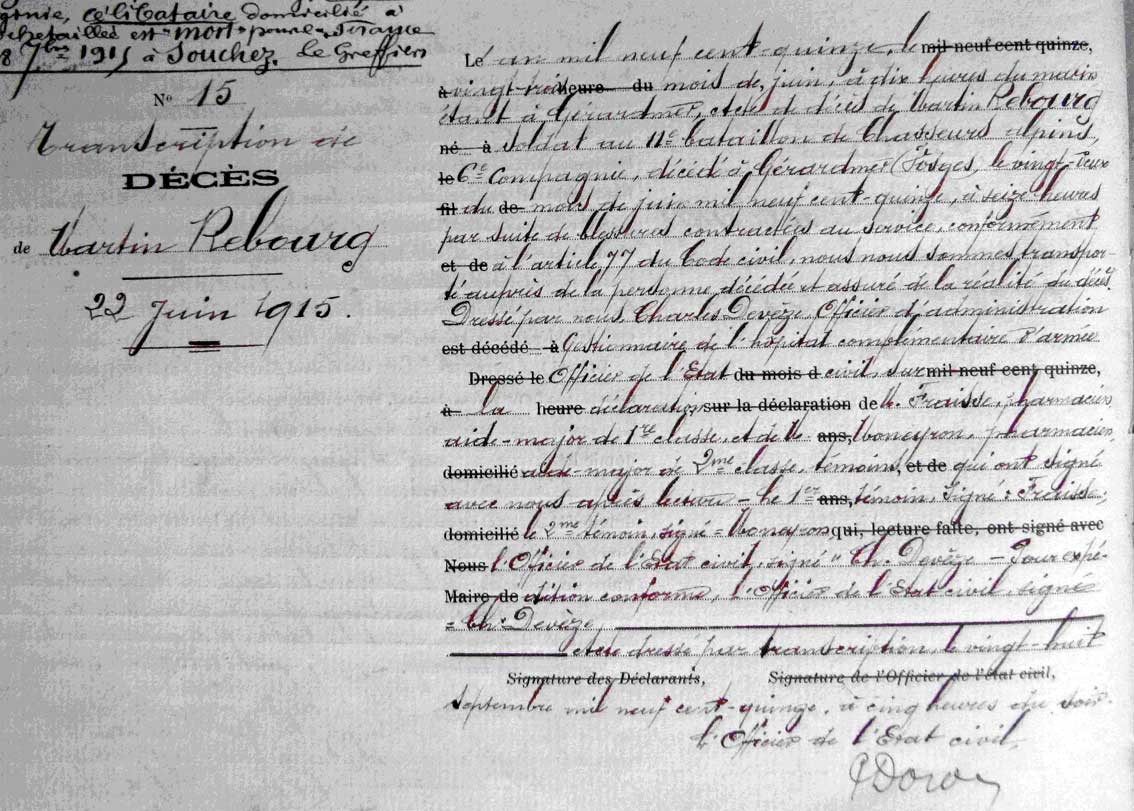 génie, célibataire domicilié à
Échetailles est "mort pour la France
8 7bre 1915 à Souchez. Le Greffier
No 15
Transcription de
DÉCÈS
de Martin Rebourg
22 Juin 1915.
Le an mil neuf cent-quinze, le mil neuf cent quinze,
à vingt-trois heure du mois de juin, à dix heures du matin
étant à Gérardmer, acte de décès de Martin Rebourg
né à soldat au 11e bataillon de Chasseurs alpins,
le 6e Compagnie, décédé à Gérardmer (Vosges, le vingt-deux
fil du de mois de juin mil neuf cent-quinze, à seize heures
par suite de blessures contractées au service, conformément
et de à l'article 77 du Code civil, nous nous sommes transpor-
té auprès de la personne décédée et assuré de la réalité du décès.
Dressé par nous, Charles Devèze, Officier d'administration
est décédé à Gestionnaire de l'hôpital complémentaire d'armée
Dressé le Officier de l'État du mois d civil, sur mil neuf cent quinze,
à la heure déclaration sur la déclaration de M. Fraisse, pharmacien
aide-major de 1re classe, et de M. ans, Moneyron, pharmacien,
domicilié aide-major de 2me classe, témoins, et de qui ont signé
avec nous après lecture - Le 1er ans, témoin, signé : Fraisse,
domicilié le 2me témoin, signé = Moneyron qui, lecture faite, ont signé avec
Nous l'Officier de l'État civil, signé " Ch. Devèze - Pour expé-
Maire de dition conforme, l'Officier de l'État civil signé
= Ch. Devèze,
acte dressé par transcription, le vingt-huit
Signature des Déclarants, Signature de l'Officier de l'état civil,
septembre mil neuf cent-quinze, à cinq heures du soir.
L'Officier de l'État civil,